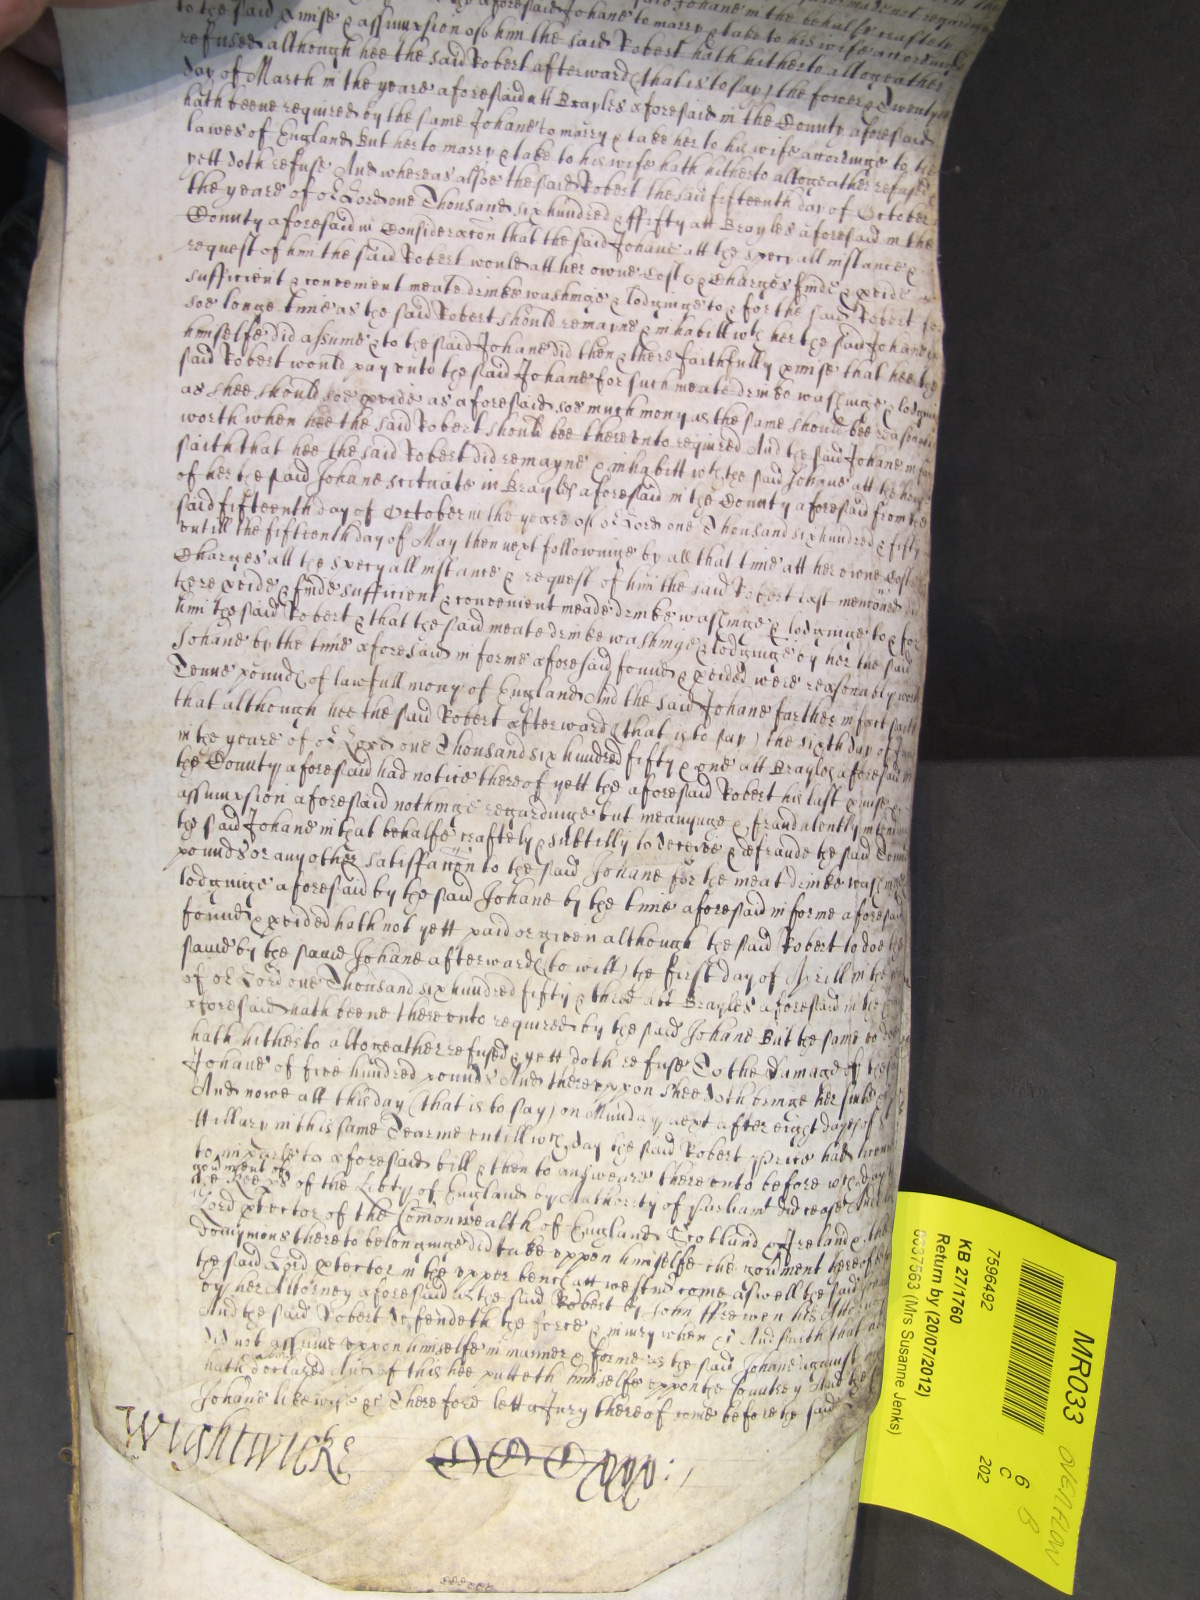 to the said pmise & assumpsion of him the said Robert hath hitherto altogeather
refused although hee the said Robert afterward (that is to say) the fower & Twentyth
day of March in the yeare aforesaid att Brayles aforesaid in the County aforesaid
hath beene required by the same Johane to marry & take her to his wife accordinge to the
lawes of England But her to marry & take to his wife hath hitherto altogeather refused
yett doth refuse And whereas alsoe the said Robert the said fifteenth day of October
the yeare of or Lord one Thousand six hundred & ffifty att Brayles aforesaid in the
County aforesaid in Consideracon that the said Johane att the speciall instance &
request of him the said Robert would att her owne Cost & Charges finde & pvide
sufficient & convenient meate drinke washinge & lodginge to & for the said Robert for
soe longe time as the said Robert should remayne & inhabitt wth her the said Johane
himselfe did assume & to the said Johane did then & there faithfully pmise that hee the
said Robert would pay unto the said Johane for such meate drinke washinge & lodginge
as shee should soe pvide as aforesaid soe much mony as the same should bee reasonably
worth when hee the said Robert should bee thereunto required And the said Johane in fact
saith that hee the said Robert did remayne & inhabitt wth the said Johane att the house
of her the said Johane scituate in Brayles aforesaid in the County aforesaid from the
said fifteenth day of October in the yeare of or Lord one Thousand six hundred & fifty
untill the fifteenth day of May then next followinge by all that time att her owne Cost &
Charges att the speciall instance & request of him the said Robert last menconed did
there pvide & finde sufficient & convenient meate drinke washinge & lodginge to & for
him the said Robert & that the said meate drinke washinge & lodginge by her the said
Johane by the time aforesaid in forme aforesaid found & pvided were reasonably worth
Tenne pounds of lawfull mony of England And the said Johane farther in fact saith
that although hee the said Robert afterward (that is to say) the sixth day of June
in the yeare of or Lord one Thousand six hundred fifty & one att Brayles aforesaid in
the County aforesaid had notice thereof yett the aforesaid Robert his last pmise &
assumpsion aforesaid nothinge regardinge but meaninge & fraudulently intendinge
the said Johane in that behalfe craftely & subtilly to deceive & defraude the said Tenne
pounds or any other satisfaccon to the said Johane for the meat drinke washinge
lodginge aforesaid by the said Johane by the time aforesaid in forme aforesaid
found & pvided hath not yett paid or given although the said Robert to doe the
same by the same Johane afterward (to witt) the first day of Aprill in the yeare
of or Lord one Thousand six hundred fifty & three att Brayles aforesaid in the County
aforesaid hath beene thereunto required by the said Johane But the same to doe
hath hitherto altogeather refused & yett doth refuse To the damage of the said
Johane of five hundred pounds And thereuppon shee doth bringe her suite &c
And nowe att this day (that is to say) on Munday next after eight dayes of St
Hillary in this same Tearme untill wch day the said Robert Price had licence
to imparle to aforesaid bill & then to answeare thereunto before wch day
govment of
the Keeps of the Libty of England by Authority of Parliamt did cease And the
Lord ptector of the Comonwealth of England Scotland & Ireland & the
dominions thereto belonginge did take uppon himselfe the govment thereof before
the said Lord ptector in the upper bench att westmr come aswell the said Johane
by her Attorney aforesaid as the said Robert by John Ffrewen his Attorney
And the said Robert defendeth the force & iniury when &c And saith that hee
did not assume uppon himselfe in manner & forme as the said Johane against
hath declared And of this hee putteth himselfe uppon the Countrey And the said
Johane likewise &c Therefore lett a Jury thereof come before the said
Wightwicke
MR033
OVERFLOW
7596492
6
B
C
202
KB 27/1760
Return by (20/07/2012)
6337563 (Mrs Susanne Jenks)